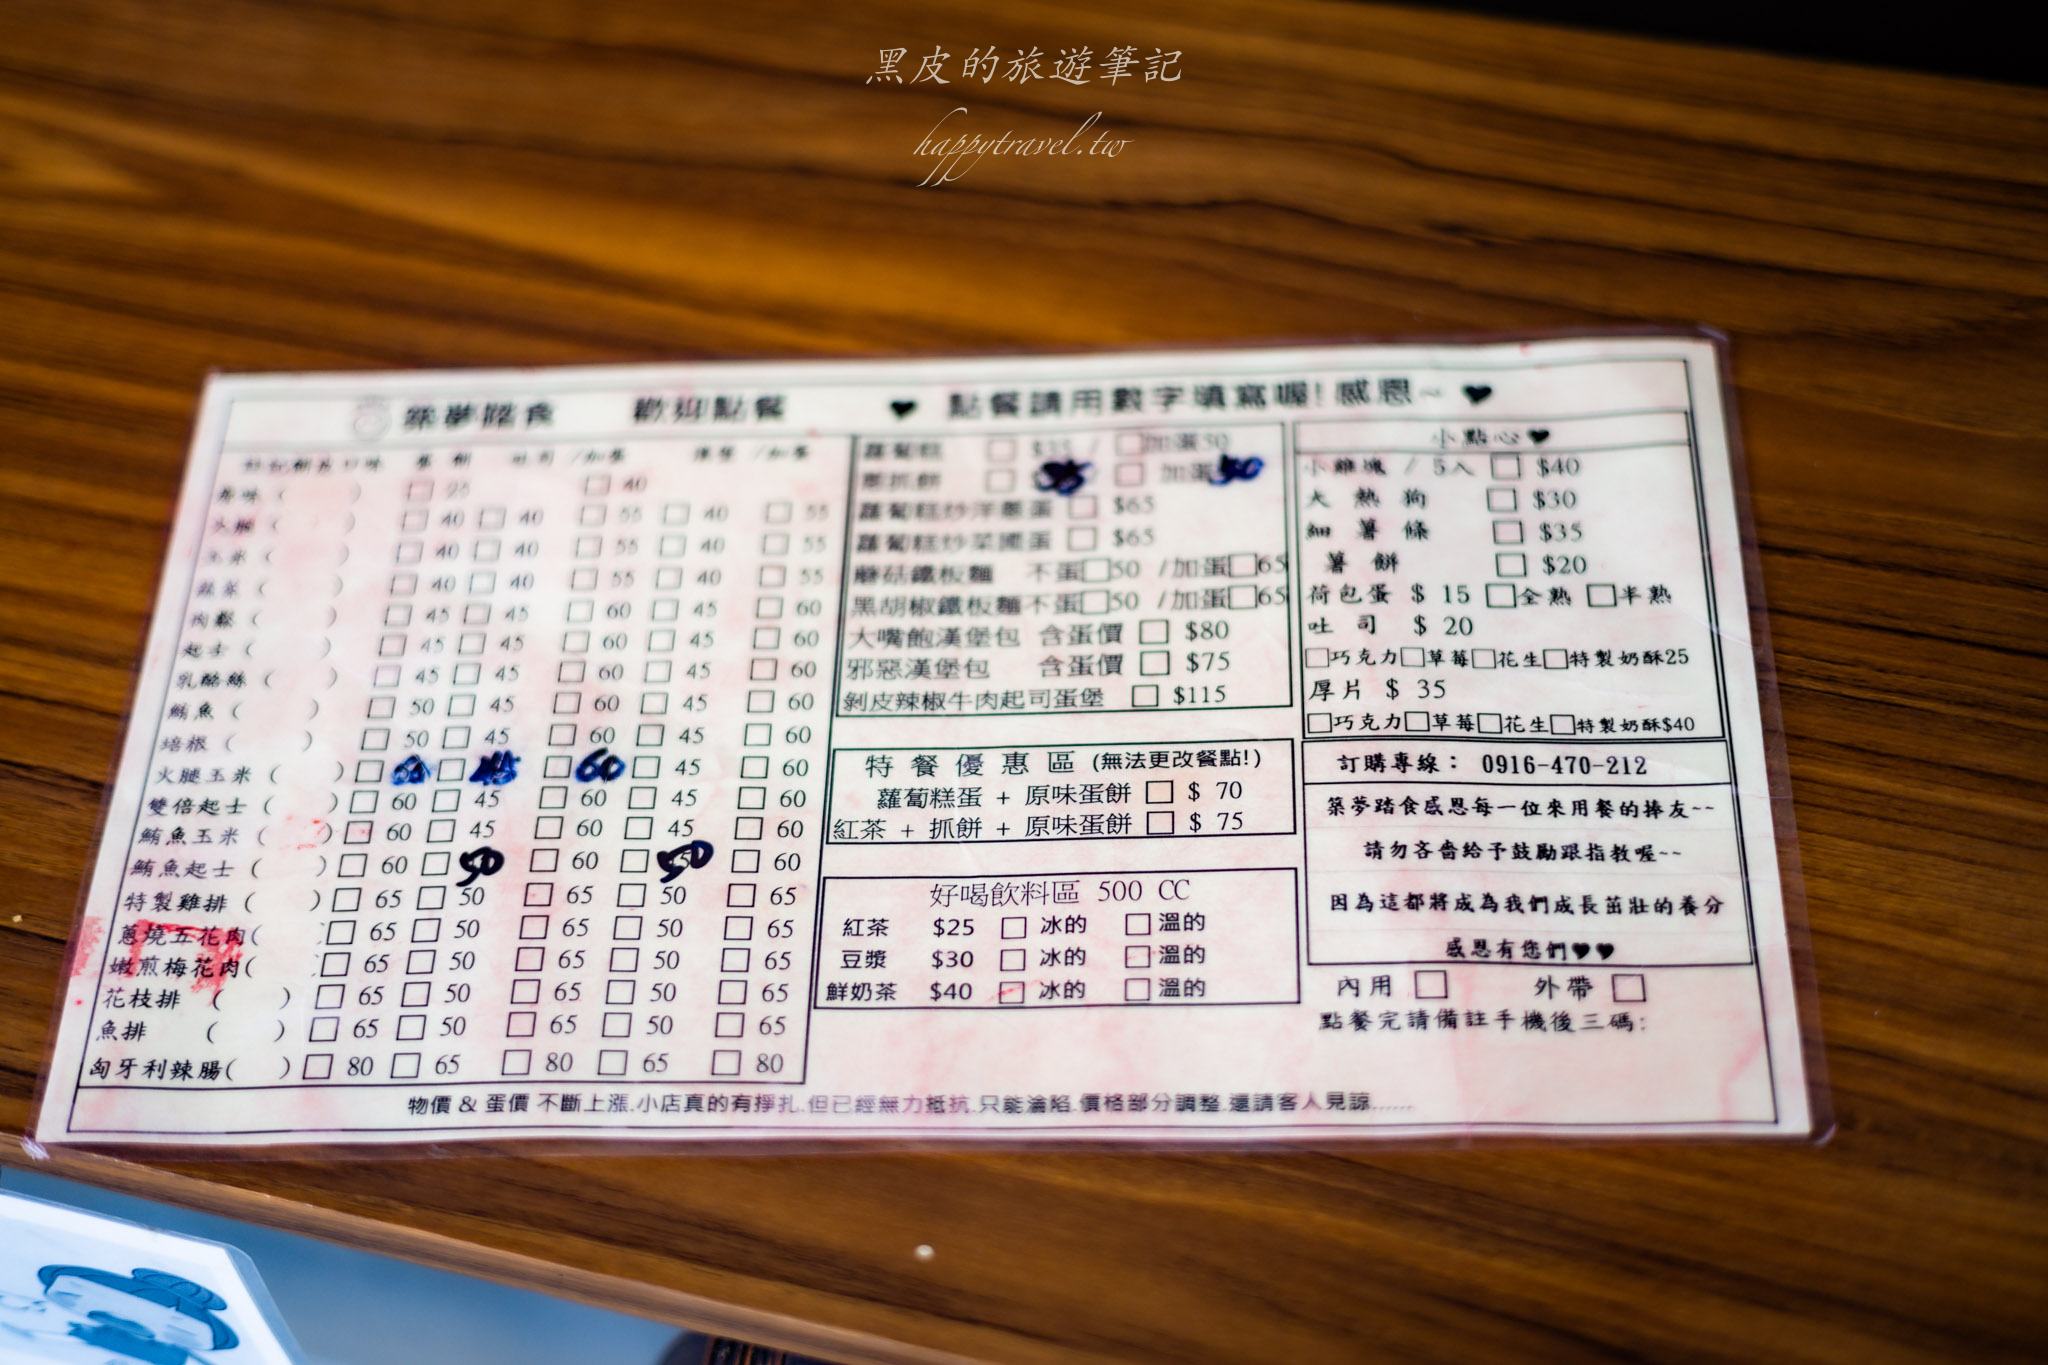 黑皮的旅遊筆記
happytravel.tw
築夢踏食 歡迎點餐 ♥ 點餐請用數字填寫喔!感恩~ ♥
蛋餅 吐司 /加蛋 漢堡 /加蛋
原味 ( ) □ 25 □ 40
□ 40 □ 40 □ 55 □ 40 □ 55
玉米 ( ) □ 40 □ 40 □ 55 □ 40 □ 55
蔬菜 ( ) □ 40 □ 40 □ 55 □ 40 □ 55
肉鬆 ( ) □ 45 □ 45 □ 60 □ 45 □ 60
起士 ( ) □ 45 □ 45 □ 60 □ 45 □ 60
乳酪絲 ( ) □ 45 □ 45 □ 60 □ 45 □ 60
鮪魚 ( ) □ 50 □ 45 □ 60 □ 45 □ 60
培根 ( ) □ 50 □ 45 □ 60 □ 45 □ 60
火腿玉米 ( ) □ □ 45 □ 60 □ 45 □ 60
雙倍起士 ( ) □ 60 □ 45 □ 60 □ 45 □ 60
鮪魚玉米 ( ) □ 60 □ 45 □ 60 □ 45 □ 60
鮪魚起士 ( ) □ 60 □ 50 □ 60 □ 50 □ 60
特製雞排 ( ) □ 65 □ 50 □ 65 □ 50 □ 65
蔥燒五花肉( ) □ 65 □ 50 □ 65 □ 50 □ 65
嫩煎梅花肉( ) □ 65 □ 50 □ 65 □ 50 □ 65
花枝排 ( ) □ 65 □ 50 □ 65 □ 50 □ 65
魚排 ( ) □ 65 □ 50 □ 65 □ 50 □ 65
匈牙利辣腸( ) □ 80 □ 65 □ 80 □ 65 □ 80
蘿蔔糕 □ $35 / □加蛋50
蔥抓餅 □ 35 □ 加蛋50
蘿蔔糕炒洋蔥蛋 □ $65
蘿蔔糕炒菜脯蛋 □ $65
蘑菇鐵板麵 不蛋□50 /加蛋□65
黑胡椒鐵板麵不蛋□50 /加蛋□65
大嘴飽漢堡包 含蛋價 □ $80
邪惡漢堡包 含蛋價 □ $75
剝皮辣椒牛肉起司蛋堡 □ $115
特餐優惠區 (無法更改餐點!)
蘿蔔糕蛋 + 原味蛋餅 □ $ 70
紅茶 + 抓餅 + 原味蛋餅 □ $ 75
好喝飲料區 500 CC
紅茶 $25 □ 冰的 □溫的
豆漿 $30 □ 冰的 □溫的
鮮奶茶 $40 □ 冰的 □溫的
小點心♥
小雞塊 / 5入 □ $40
大熱狗 □ $30
細薯條 □ $35
薯餅 □ $20
荷包蛋 $ 15 □全熟 □半熟
吐司 $ 20
□巧克力□草莓□花生□特製奶酥25
厚片 $ 35
□巧克力□草莓□花生□特製奶酥$40
訂購專線： 0916-470-212
築夢踏食感恩每一位來用餐的捧友~~
請勿吝嗇給予鼓勵跟指教喔~~
因為這都將成為我們成長茁壯的養分
感恩有您們♥♥
內用 □ 外帶 □
點餐完請備註手機後三碼:
物價 & 蛋價 不斷上漲.小店真的有掙扎.但已經無力抵抗.只能淪陷.價格部分調整.還請客人見諒......